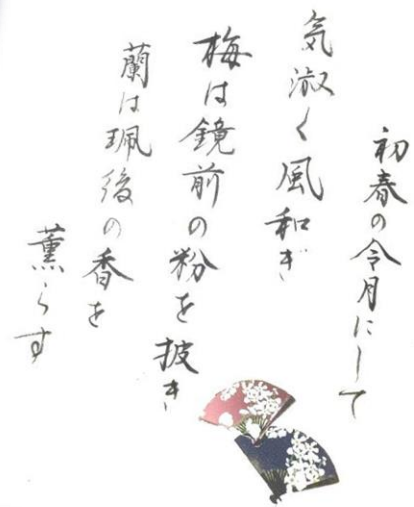 初春の令月にして
気淑く風和ぎ
梅は鏡前の粉を披き
蘭は珮後の香を
薫らす